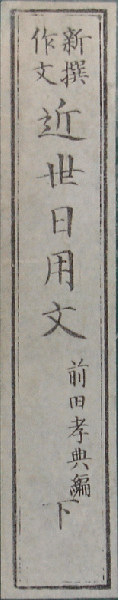 新撰
作文
近世日用文
前田孝典編
下